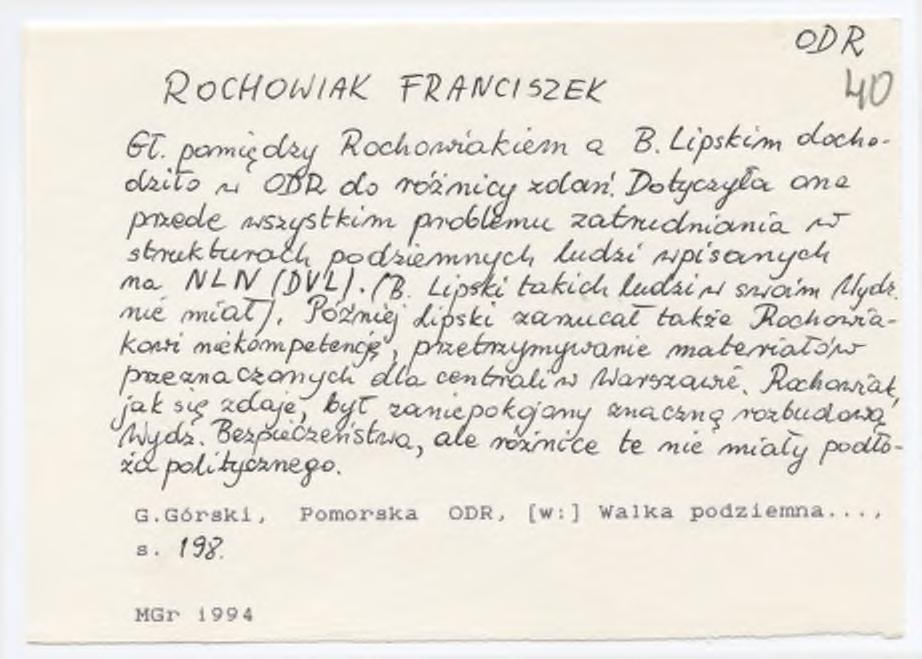 ODR
40
ROCHOWIAK FRANCISZEK
Gł. pomiędzy Rochowiakiem a B. Lipskim docho-
dziło w ODR do różnicy zdań. Dotyczyła one
przede wszystkim problemu zatrudniania w
strukturach podziemnych ludzi wpisanych
na NLN (DVL). (B. Lipski takich ludzi w swoim Wydz.
nie miał). Później Lipski zarzucał także Rochowia-
kowi niekompetencję, przetrzymywanie materiałów
przeznaczonych dla centrali w Warszawie. Rochowiak,
jak się zdaje, był zaniepokojony znaczną rozbudową
Wydz. Bezpieczeństwa, ale różnice te nie miały podło-
ża politycznego.
G.Górski, Pomorska ODR, [w:] Walka podziemna...,
s. 198.
MGr 1994